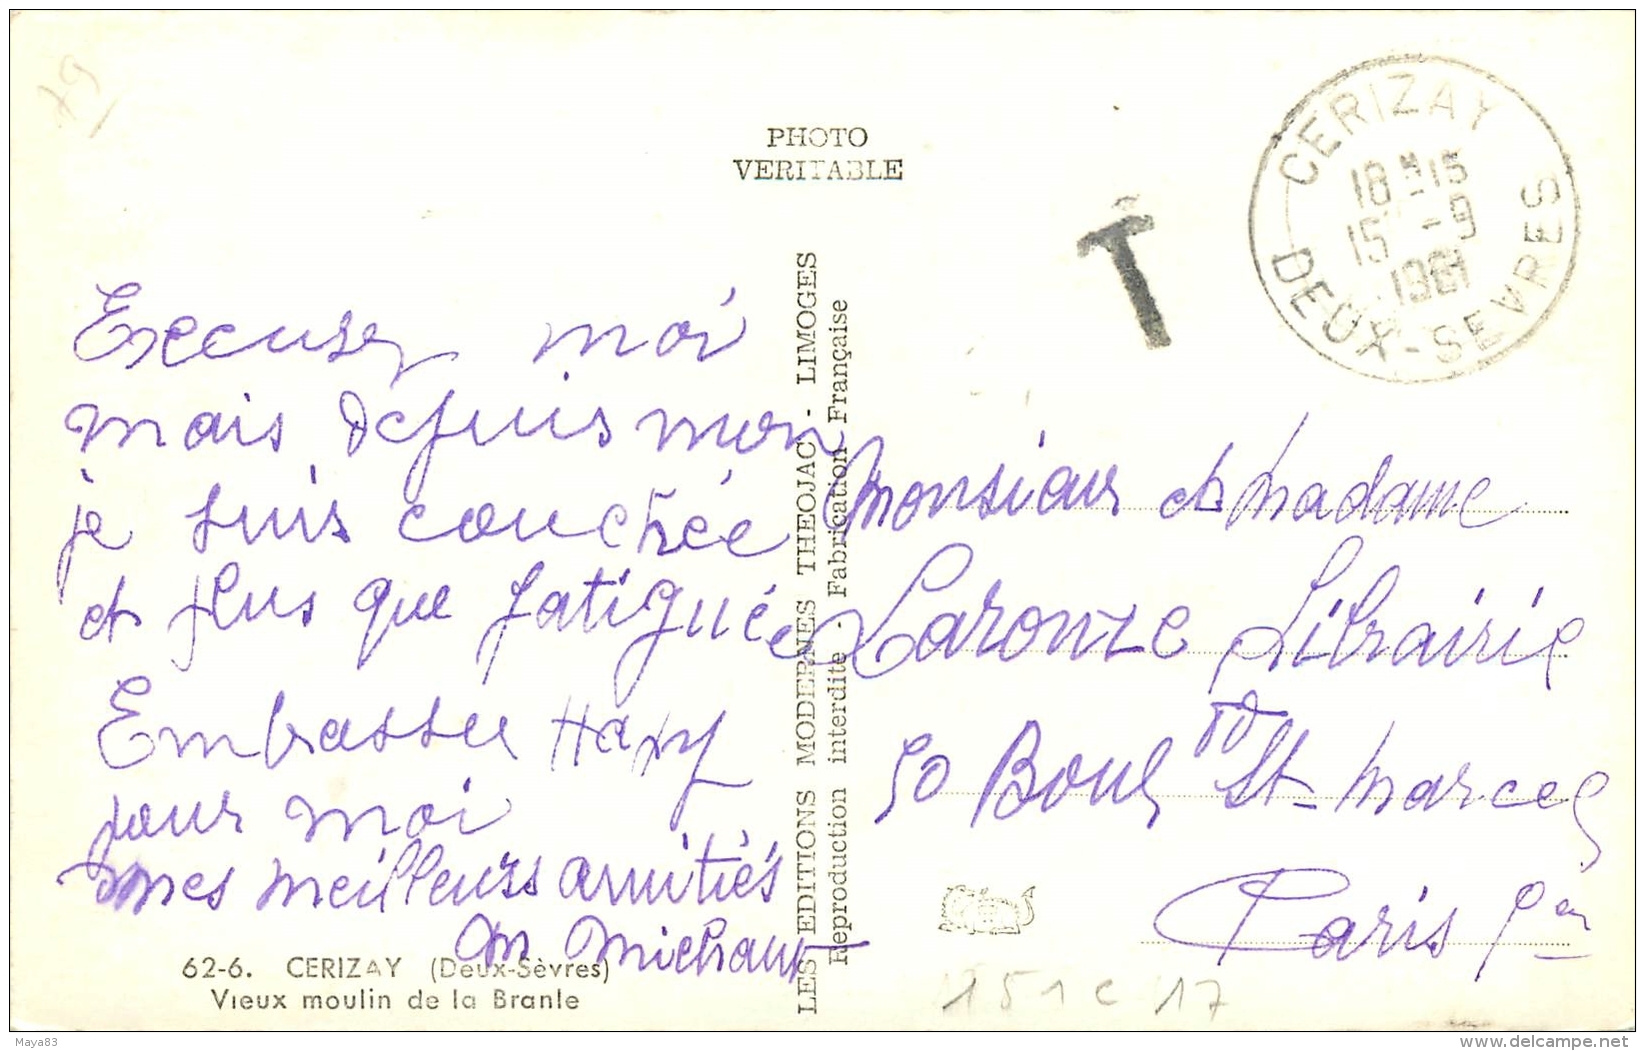 79
PHOTO
VERITABLE
T
CERIZAY
18H15
15 -9
1961
DEUX-SEVRES
Excusez moi
mais depuis mon
je suis couchée
et plus que fatiguée
Embassee
pour moi
mes meilleurs amitiés
M Michaux
62-6. CERIZAY (Deux-Sèvres)
Vieux moulin de la Branle
LES EDITIONS MODERNES THEOJAC - LIMOGES
Reproduction interdite - Fabrication Française
Monsieur et Madame
Laronze Librairie
50 Boul St Marcel
Paris
151 c 17
Maya83
delcampe.net